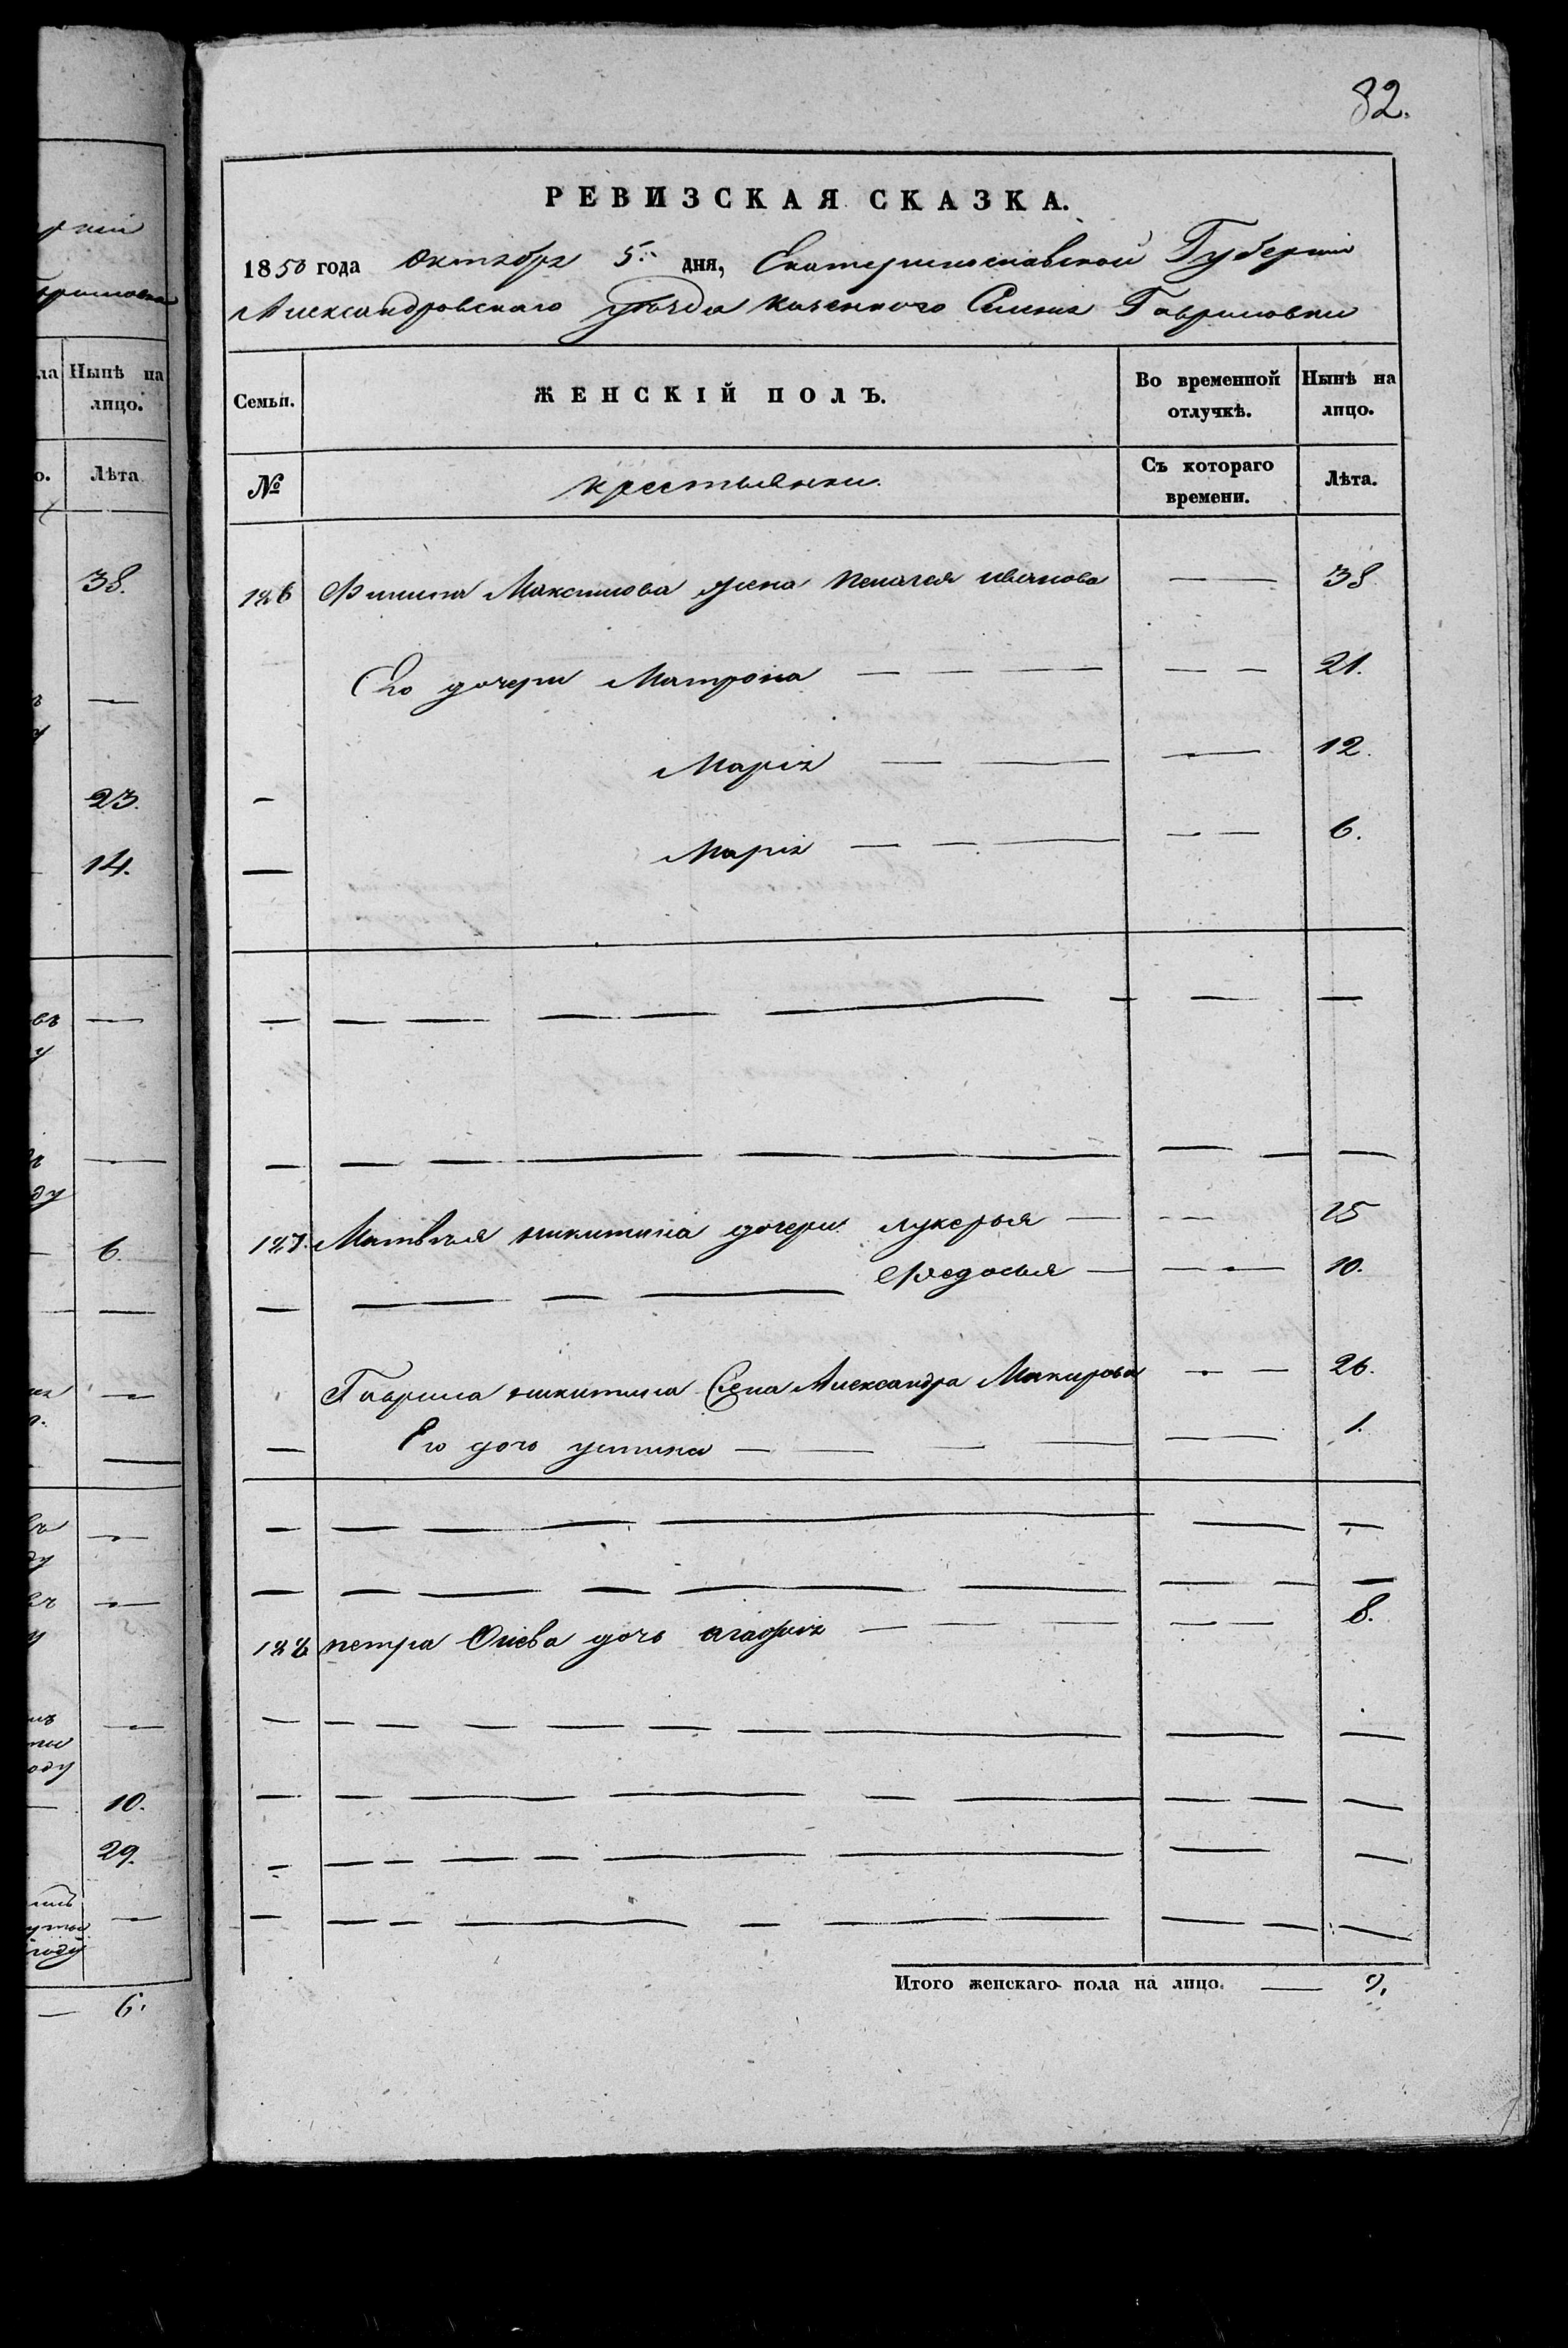 82.
РЕВИЗСКАЯ СКАЗКА.
1850 года Октября 5. дня, Екатеринославской Губерніи
Александровскаго уѣзда казенного Селенія Гавриловки
Семьи. ЖЕНСКІЙ ПОЛЪ. Во временной отлучкѣ. Нынѣ на лицо.
№ крестьянки. Съ котораго времени. Лѣта.
126 Филипа Максимова жена пелагея иванова — — 38
Его дочери Матрона — — — — — 21.
Марія — — — 12.
Марія — — — — — 6.
127. Матвѣя никитина дочери лукерья — — — 15
Федосья — — — 10.
Гаврила никитина жена Александра Макарова — — 26.
Его дочь устина — — — — — — 1.
128 петра дочь агафія — — — — — 8.
Итого женскаго пола на лицо. — 9.
ла Нынѣ на
лицо.
о. Лѣта
38.
23.
14.
въ
у
ду
6.
10.
29.
году
— 6.